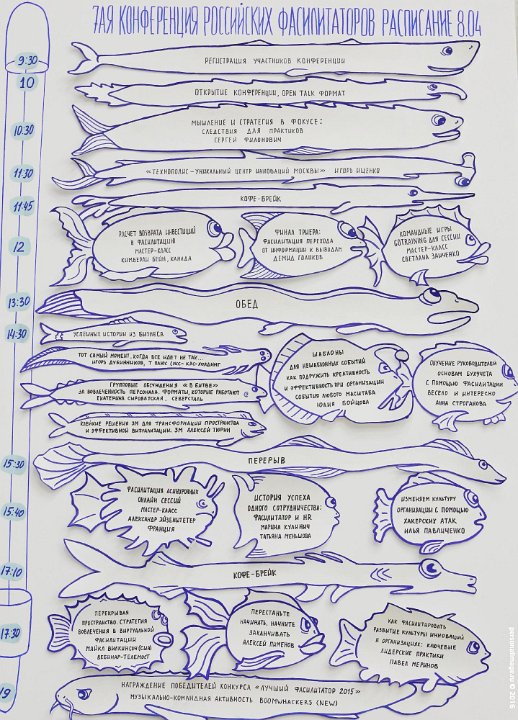 7АЯ КОНФЕРЕНЦИЯ РОССИЙСКИХ ФАСИЛИТАТОРОВ РАСПИСАНИЕ 8.04
9:30
РЕГИСТРАЦИЯ УЧАСТНИКОВ КОНФЕРЕНЦИИ
10
ОТКРЫТИЕ КОНФЕРЕНЦИИ, OPEN TALK ФОРМАТ
10.30
МЫШЛЕНИЕ И СТРАТЕГИЯ В ФОКУСЕ:
СЛЕДСТВИЯ ДЛЯ ПРАКТИКОВ
СЕРГЕЙ ФИЛОНОВИЧ
11.30
«ТЕХНОПОЛИС-УНИКАЛЬНЫЙ ЦЕНТР ИННОВАЦИЙ МОСКВЫ» ИГОРЬ ИЩЕНКО
11.45
КОФЕ-БРЕЙК
12
РАСЧЕТ ВОЗВРАТА ИНВЕСТИЦИЙ
В ФАСИЛИТАЦИЮ
МАСТЕР-КЛАСС
КИМБЕРЛИ БЕЙН, КАНАДА
ФИНАЛ ТРИЛЕРА:
ФАСИЛИТАЦИЯ ПЕРЕХОДА
ОТ ИНФОРМАЦИИ К ВЫВОДАМ
ДЕМИД ГОЛИКОВ
КОМАНДНЫЕ ИГРЫ
ДЛЯ СЕССИИ
МАСТЕР-КЛАСС
СВЕТЛАНА ЗАИЧЕНКО
13:30
ОБЕД
14:30
УСПЕШНЫЕ ИСТОРИИ ИЗ БИЗНЕСА
ТОТ САМЫЙ МОМЕНТ, КОГДА ВСЕ ИДЕТ НЕ ТАК...
ИГОРЬ ДУБИННИКОВ,
ГРУППОВЫЕ ОБСУЖДЕНИЯ «В БИТВЕ»
ЗА ВОВЛЕЧЕННОСТЬ ПЕРСОНАЛА. ФОРМАТЫ, КОТОРЫЕ РАБОТАЮТ
ЕКАТЕРИНА СЫРОВАТСКАЯ, СЕВЕРСТАЛЬ
КЛЕЙКИЕ РЕШЕНИЯ 3М ДЛЯ ТРАНСФОРМАЦИИ ПРОСТРАНСТВА
И ЭФФЕКТИВНОЙ ВИЗУАЛИЗАЦИИ. 3М АЛЕКСЕЙ ТЮРИН
ШАБЛОНЫ
ДЛЯ НЕШАБЛОННЫХ СОБЫТИЙ
КАК ПОДРУЖИТЬ КРЕАТИВНОСТЬ
И ЭФФЕКТИВНОСТЬ ПРИ ОРГАНИЗАЦИИ
СОБЫТИЯ ЛЮБОГО МАСШТАБА
ЮЛИЯ БОЙЦОВА
ОБУЧЕНИЕ РУКОВОДИТЕЛЕЙ
ОСНОВАМ БУДУЧЕТА
С ПОМОЩЬЮ ФАСИЛИТАЦИИ
ВЕСЕЛО И ИНТЕРЕСНО
АННА СТРОГАНОВА
15:30
ПЕРЕРЫВ
15.40
ФАСИЛИТАЦИЯ АСИНХРОННЫХ
ОНЛАЙН СЕССИЙ
МАСТЕР-КЛАСС
АЛЕКСАНДР ЭЙДЕЛЬШТЕТЕР
ФРАНЦИЯ
ИСТОРИЯ УСПЕХА
ОДНОГО СОТРУДНИЧЕСТВА:
ФАСИЛИТАТОР И HR
МАРИНА КУЛИНИЧ
ТАТЬЯНА МЕНЬШОВА
ИЗМЕНЯЕМ КУЛЬТУРУ
ОРГАНИЗАЦИИ С ПОМОЩЬЮ
ХАКЕРСКИХ АТАК.
ИЛЬЯ ПАВЛИЧЕНКО
17.10
КОФЕ-БРЕЙК
17:30
ПЕРЕКРЫВАЯ
ПРОСТРАНСТВО: СТРАТЕГИЯ
ВОВЛЕЧЕНИЯ В ВИРТУАЛЬНОЙ
ФАСИЛИТАЦИИ
МАЙКЛ ВИЛКИНСОН (США)
ВЕБИНАР-ТЕЛЕМОСТ
ПЕРЕСТАНЬТЕ
НАЧИНАТЬ, НАЧНИТЕ
ЗАКАНЧИВАТЬ
АЛЕКСЕЙ ПИМЕНОВ
КАК ФАСИЛИТИРОВАТЬ
РАЗВИТИЕ КУЛЬТУРЫ ИННОВАЦИЙ
В ОРГАНИЗАЦИИ: КЛЮЧЕВЫЕ
ЛИДЕРСКИЕ ПРАКТИКИ
ПАВЕЛ МЕРИНОВ
19
НАГРАЖДЕНИЕ ПОБЕДИТЕЛЕЙ КОНКУРСА «ЛУЧШИЙ ФАСИЛИТАТОР 2015»
МУЗЫКАЛЬНО-КОМАНДНАЯ АКТИВНОСТЬ BOOMWHACKERS (NEW)